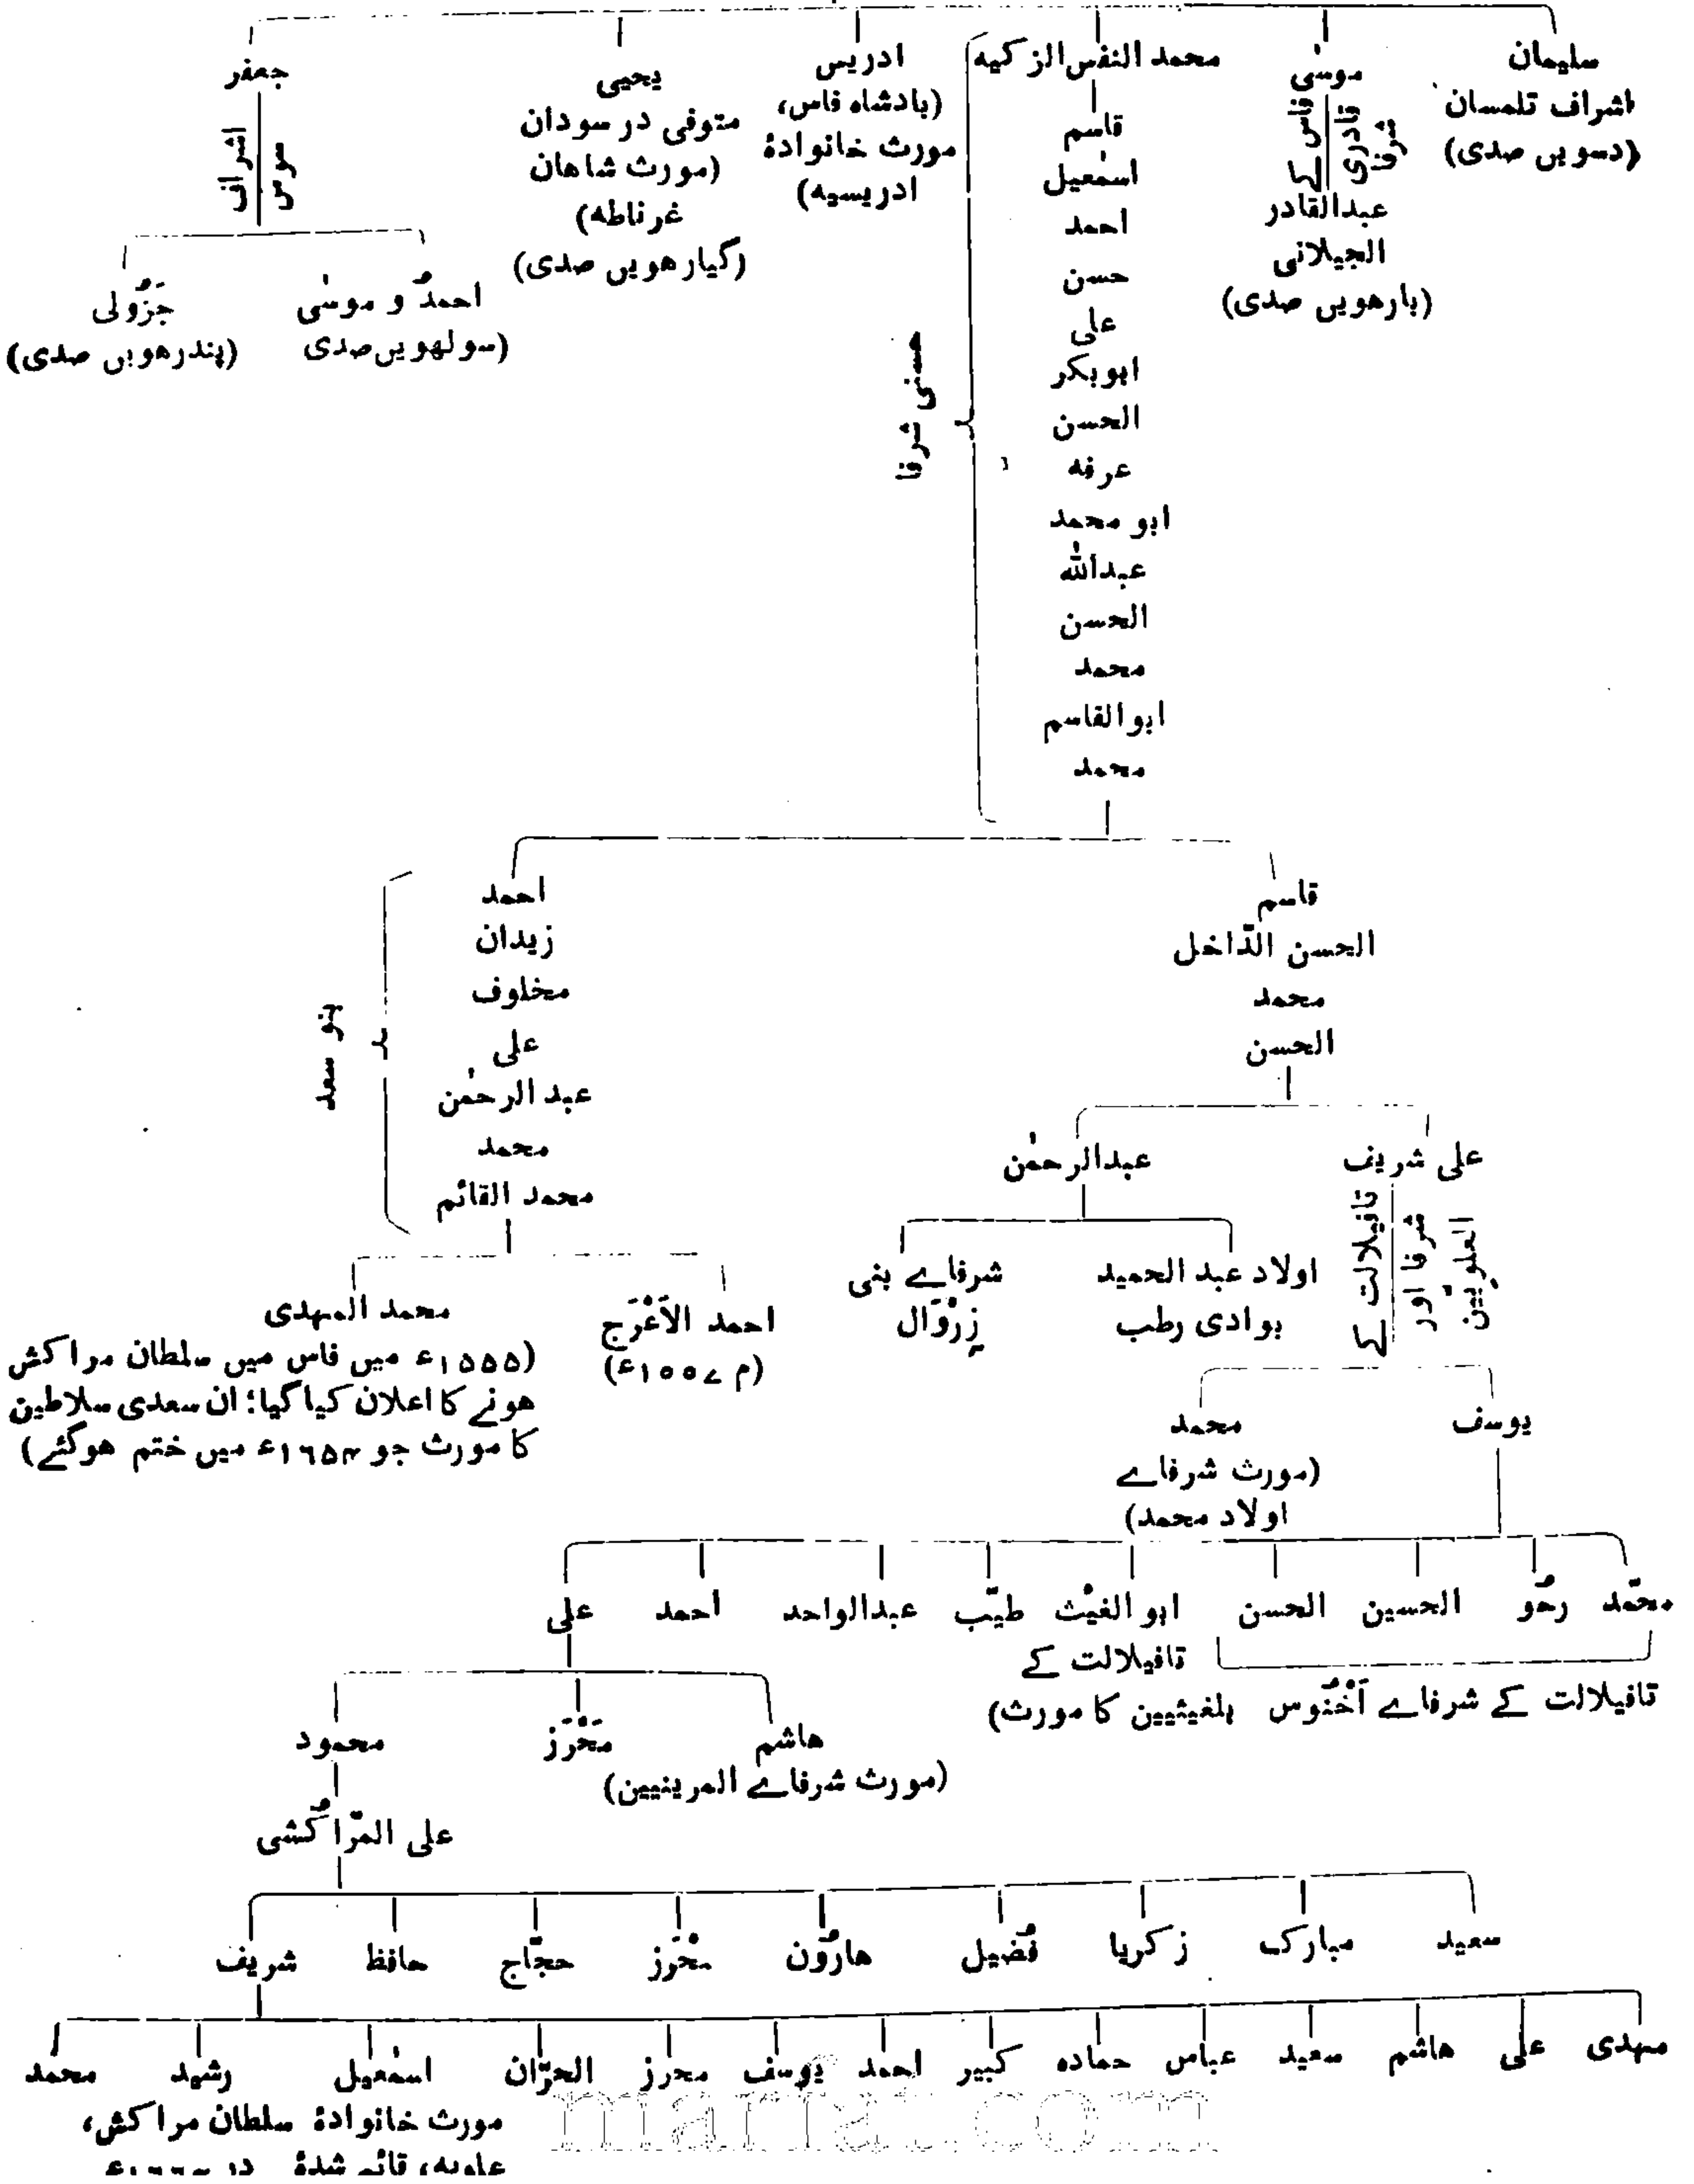 سلیمان
اشراف تلمسان
(دسویں صدی)
موسٰی
فاس کے
قادری
شرفا
عبدالقادر
الجیلانی
(بارھویں صدی)
محمد النفس الزکیہ
قاسم
اسمٰعیل
احمد
حسن
علی
ابوبکر
الحسن
عرفہ
ابو محمد
عبداللہ
الحسن
محمد
ابوالقاسم
محمد
حسنی شرفا
ادریس
(بادشاہ فاس،
مورث خانوادۂ
ادریسیہ)
یحیی
متوفی در سودان
(مورث شاھان
غرناطہ)
(گیارھویں صدی)
جعفر
اشراف
سوس
احمدُ و موسٰی
(سولھویں صدی
جَزُولی
(پندرھویں صدی)
قاسم
الحسن الدّاخل
محمد
الحسن
احمد
زیدان
مخلوف
علی
عبد الرحمٰن
محمد
محمد القائم
بنو سعد
علی شریف
تافیلالت کے
شرفا اور
العلویّین
عبدالرحمٰن
اولاد عبد الحمید
بوادی رطب
شرفاے بنی
زِرْوَال
احمد الاَعْرَج
(م ۱۵۵۷ء)
محمد المہدی
(۱۵۵۵ء میں فاس میں سلطان مراکش
ھونے کا اعلان کیا گیا؛ ان سعدی سلاطین
کا مورث جو ۱۶۵۴ء میں ختم ھوگئے)
یوسف
محمد
(مورث شرفاے
اولاد محمد)
محمّد
رحُو
الحسین
الحسن
ابو الغیْث
طیّب
عبدالواحد
احمد
علی
تافیلالت کے شرفاے اَخْنُوس
تافیلالت کے
بلغیثیین کا مورث)
ھاشم
(مورث شرفاے المرینیین)
مَحْرَز
محمود
علی المّراکُشی
سعید
مبارک
زکریا
فُضیل
ھارُون
محْرَز
حجّاج
حافظ
شریف
مہدی
علی
ھاشم
سعید
عباس
حمادہ
کبیر
احمد
یوسف
محرز
الحرّان
اسمٰعیل
رشید
محمد
مورث خانوادۂ سلطان مراکش،
علویہ، قائم شدۂ در
marfat.com